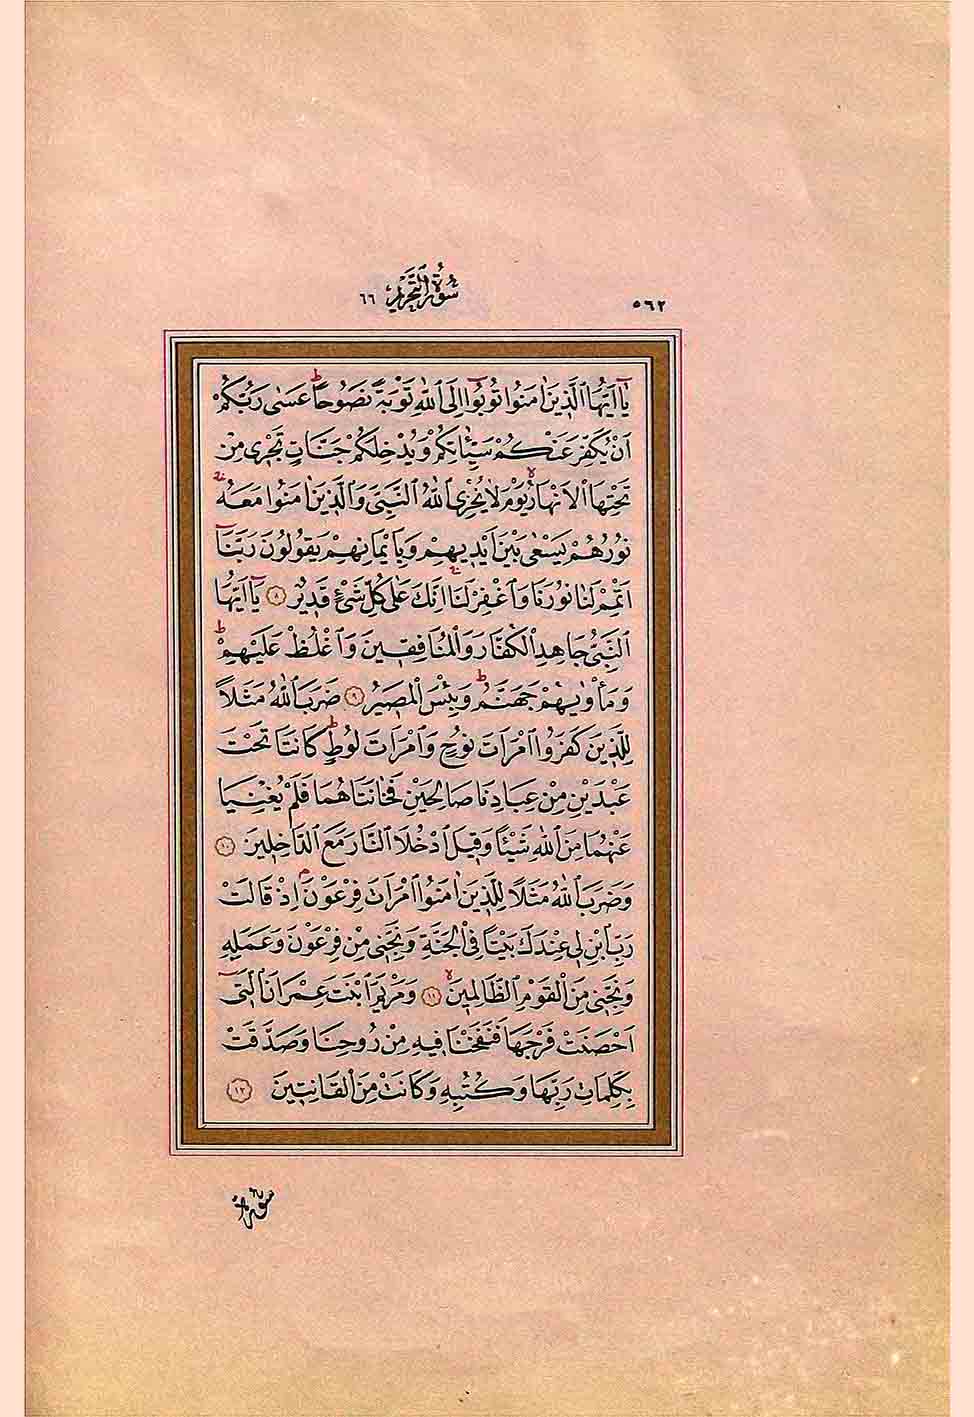 ٥٦٢
سُورَةُ التَّحْرِيمِ ٦٦
يَٓا اَيُّهَا الَّذ۪ينَ اٰمَنُوا تُوبُٓوا اِلَى اللّٰهِ تَوْبَةً نَصُوحًاۜ عَسٰى رَبُّكُمْ
اَنْ يُكَفِّرَ عَنْكُمْ سَيِّـَٔاتِكُمْ وَيُدْخِلَكُمْ جَنَّاتٍ تَجْر۪ي مِنْ
تَحْتِهَا الْاَنْهَارُۙ يَوْمَ لَا يُخْزِي اللّٰهُ النَّبِيَّ وَالَّذ۪ينَ اٰمَنُوا مَعَهُۚ
نُورُهُمْ يَسْعٰى بَيْنَ اَيْد۪يهِمْ وَبِاَيْمَانِهِمْ يَقُولُونَ رَبَّنَٓا
اَتْمِمْ لَنَا نُورَنَا وَاغْفِرْ لَنَاۚ اِنَّكَ عَلٰى كُلِّ شَيْءٍ قَد۪يرٌ ﴿٨﴾ يَٓا اَيُّهَا
النَّبِيُّ جَاهِدِ الْكُفَّارَ وَالْمُنَافِق۪ينَ وَاغْلُظْ عَلَيْهِمْۜ
وَمَأْوٰيهُمْ جَهَنَّمُۜ وَبِئْسَ الْمَص۪يرُ ﴿٩﴾ ضَرَبَ اللّٰهُ مَثَلًا
لِلَّذ۪ينَ كَفَرُوا امْرَاَتَ نُوحٍ وَامْرَاَتَ لُوطٍۜ كَانَتَا تَحْتَ
عَبْدَيْنِ مِنْ عِبَادِنَا صَالِحَيْنِ فَخَانَتَاهُمَا فَلَمْ يُغْنِيَا
عَنْهُمَا مِنَ اللّٰهِ شَيْـًٔا وَق۪يلَ ادْخُلَا النَّارَ مَعَ الدَّاخِل۪ينَ ﴿١٠﴾
وَضَرَبَ اللّٰهُ مَثَلًا لِلَّذ۪ينَ اٰمَنُوا امْرَاَتَ فِرْعَوْنَۢ اِذْ قَالَتْ
رَبِّ ابْنِ ل۪ي عِنْدَكَ بَيْتًا فِي الْجَنَّةِ وَنَجِّن۪ي مِنْ فِرْعَوْنَ وَعَمَلِه۪
وَنَجِّن۪ي مِنَ الْقَوْمِ الظَّالِم۪ينَۙ ﴿١١﴾ وَمَرْيَمَ ابْنَتَ عِمْرَانَ الَّت۪ٓي
اَحْصَنَتْ فَرْجَهَا فَنَفَخْنَا ف۪يهِ مِنْ رُوحِنَا وَصَدَّقَتْ
بِكَلِمَاتِ رَبِّهَا وَكُتُبِه۪ وَكَانَتْ مِنَ الْقَانِت۪ينَ ﴿١٢﴾